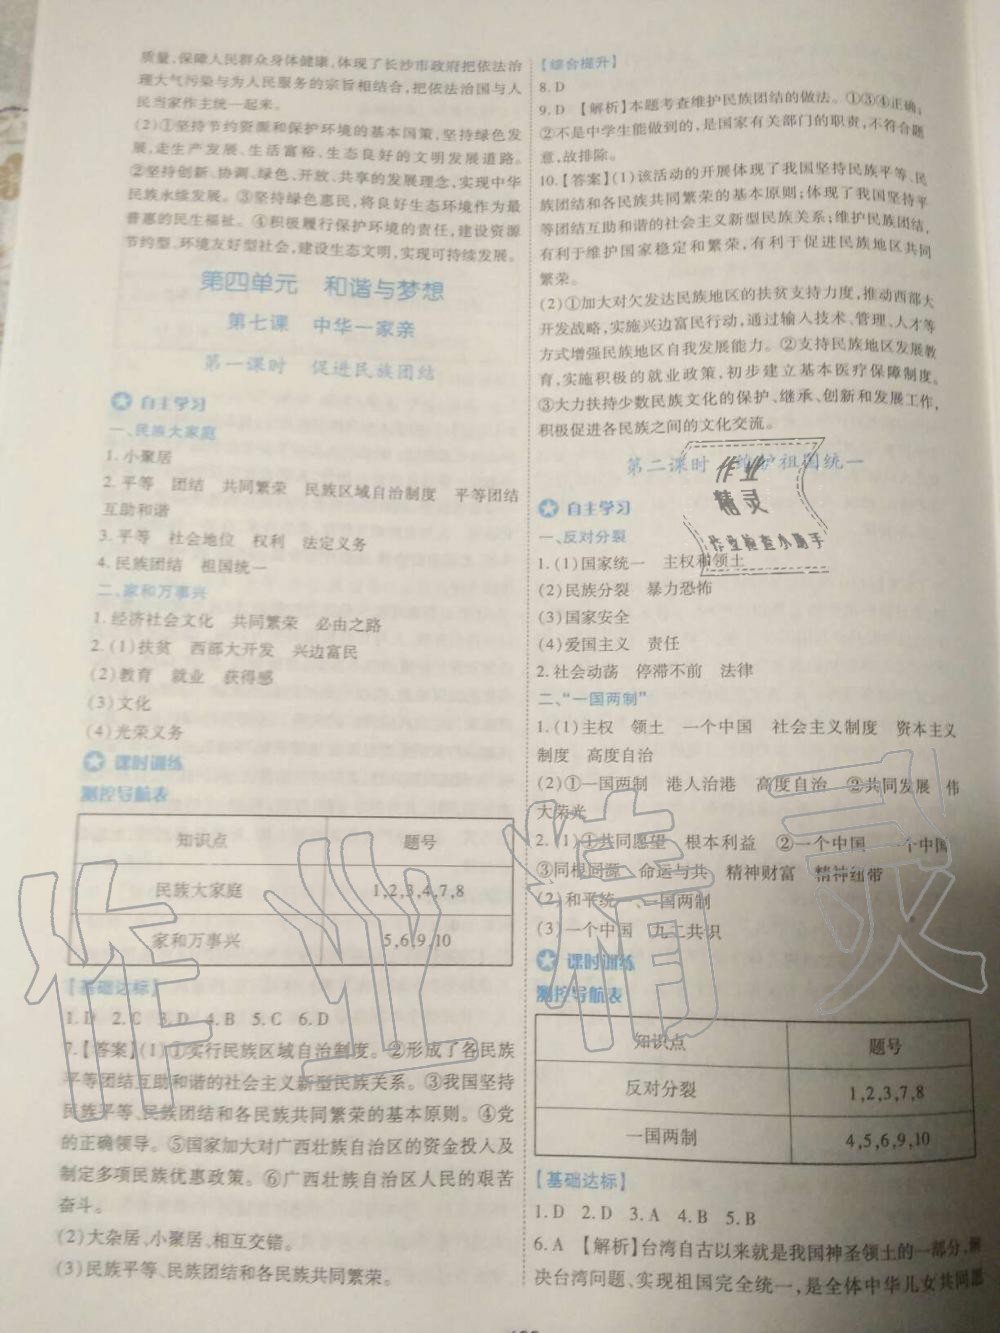 质量,保障人民群众身体健康,体现了长沙市政府把依法治
理大气污染与为人民服务的宗旨相结合,把依法治国与人
民当家作主统一起来。
(2)①坚持节约资源和保护环境的基本国策,坚持绿色发
展,走生产发展、生活富裕、生态良好的文明发展道路。
②坚持创新、协调、绿色、开放、共享的发展理念,实现中华
民族永续发展。③坚持绿色惠民,将良好生态环境作为最
普惠的民生福祉。④积极履行保护环境的责任,建设资源
节约型、环境友好型社会,建设生态文明,实现可持续发展。
第四单元 和谐与梦想
第七课 中华一家亲
第一课时 促进民族团结
自主学习
一、民族大家庭
1.小聚居
2.平等 团结 共同繁荣 民族区域自治制度 平等团结
互助和谐
3.平等 社会地位 权利 法定义务
4.民族团结 祖国统一
二、家和万事兴
1.经济社会文化 共同繁荣 必由之路
2.(1)扶贫 西部大开发 兴边富民
(2)教育 就业 获得感
(3)文化
(4)光荣义务
课时训练
测控导航表
知识点 题号
民族大家庭 1,2,3,4,7,8
家和万事兴 5,6,9,10
【基础达标】
1.D 2.C 3.D 4.B 5.C 6.D
7.【答案】(1)①实行民族区域自治制度。②形成了各民族
平等团结互助和谐的社会主义新型民族关系。③我国坚持
民族平等、民族团结和各民族共同繁荣的基本原则。④党
的正确领导。⑤国家加大对广西壮族自治区的资金投入及
制定多项民族优惠政策。⑥广西壮族自治区人民的艰苦
奋斗。
(2)大杂居、小聚居、相互交错。
(3)民族平等、民族团结和各民族共同繁荣。
【综合提升】
8.D
9.D 【解析】本题考查维护民族团结的做法。①③④正确;
②不是中学生能做到的,是国家有关部门的职责,不符合题
意,故排除。
10.【答案】(1)该活动的开展体现了我国坚持民族平等、民
族团结和各民族共同繁荣的基本原则;体现了我国坚持平
等团结互助和谐的社会主义新型民族关系;维护民族团结,
有利于维护国家稳定和繁荣,有利于促进民族地区共同
繁荣。
(2)①加大对欠发达民族地区的扶贫支持力度,推动西部大
开发战略,实施兴边富民行动,通过输入技术、管理、人才等
方式增强民族地区自我发展能力。②支持民族地区发展教
育,实施积极的就业政策,初步建立基本医疗保障制度。
③大力扶持少数民族文化的保护、继承、创新和发展工作,
积极促进各民族之间的文化交流。
第二课时 维护祖国统一
作业
精灵
作业检查小助手
自主学习
一、反对分裂
1.(1)国家统一 主权和领土
(2)民族分裂 暴力恐怖
(3)国家安全
(4)爱国主义 责任
2.社会动荡 停滞不前 法律
二、“一国两制”
1.(1)主权 领土 一个中国 社会主义制度 资本主义
制度 高度自治
(2)①一国两制 港人治港 高度自治 ②共同发展 伟
大荣光
2.(1)①共同愿望 根本利益 ②一个中国 一个中国
③同根同源 命运与共 精神财富 精神纽带
(2)和平统一、一国两制
(3)一个中国 九二共识
课时训练
测控导航表
知识点 题号
反对分裂 1,2,3,7,8
一国两制 4,5,6,9,10
【基础达标】
1.D 2.D 3.A 4.B 5.B
6.A 【解析】台湾自古以来就是我国神圣领土的一部分,解
决台湾问题、实现祖国完全统一,是全体中华儿女共同愿
作业精灵